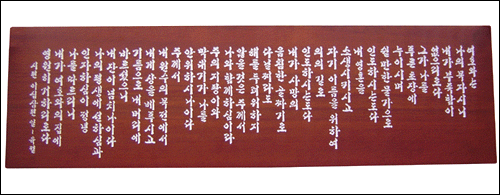 여호와는
나의 목자시니
내게 부족함이
없으리로다
그가 나를
푸른 초장에
누이시며
쉴만한 물가으로
인도하시는도다
내 영혼을
소생시키시고
자기 이름을 위하여
의의 길로
인도하시는도다
내가 사망의
음침한 골짜기로
다닐지라도
해를 두려워하지
않을것은 주께서
나와 함께 하심이라
주의 지팡이와
막대기가 나를
안위하시나이다
주께서
내 원수의 목전에서
내게 상을 베푸시고
기름으로 내 머리에
바르셨으니
내 잔이 넘치나이다
나의 평생에 선하심과
인자하심이 정녕
나를 따르리니
내가 여호와의 집에
영원히 거하리로다
시편 이십삼편 일절-육절